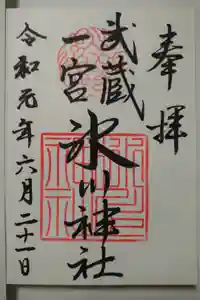 奉拝
武蔵一宮
氷川神社
令和元年六月二十一日